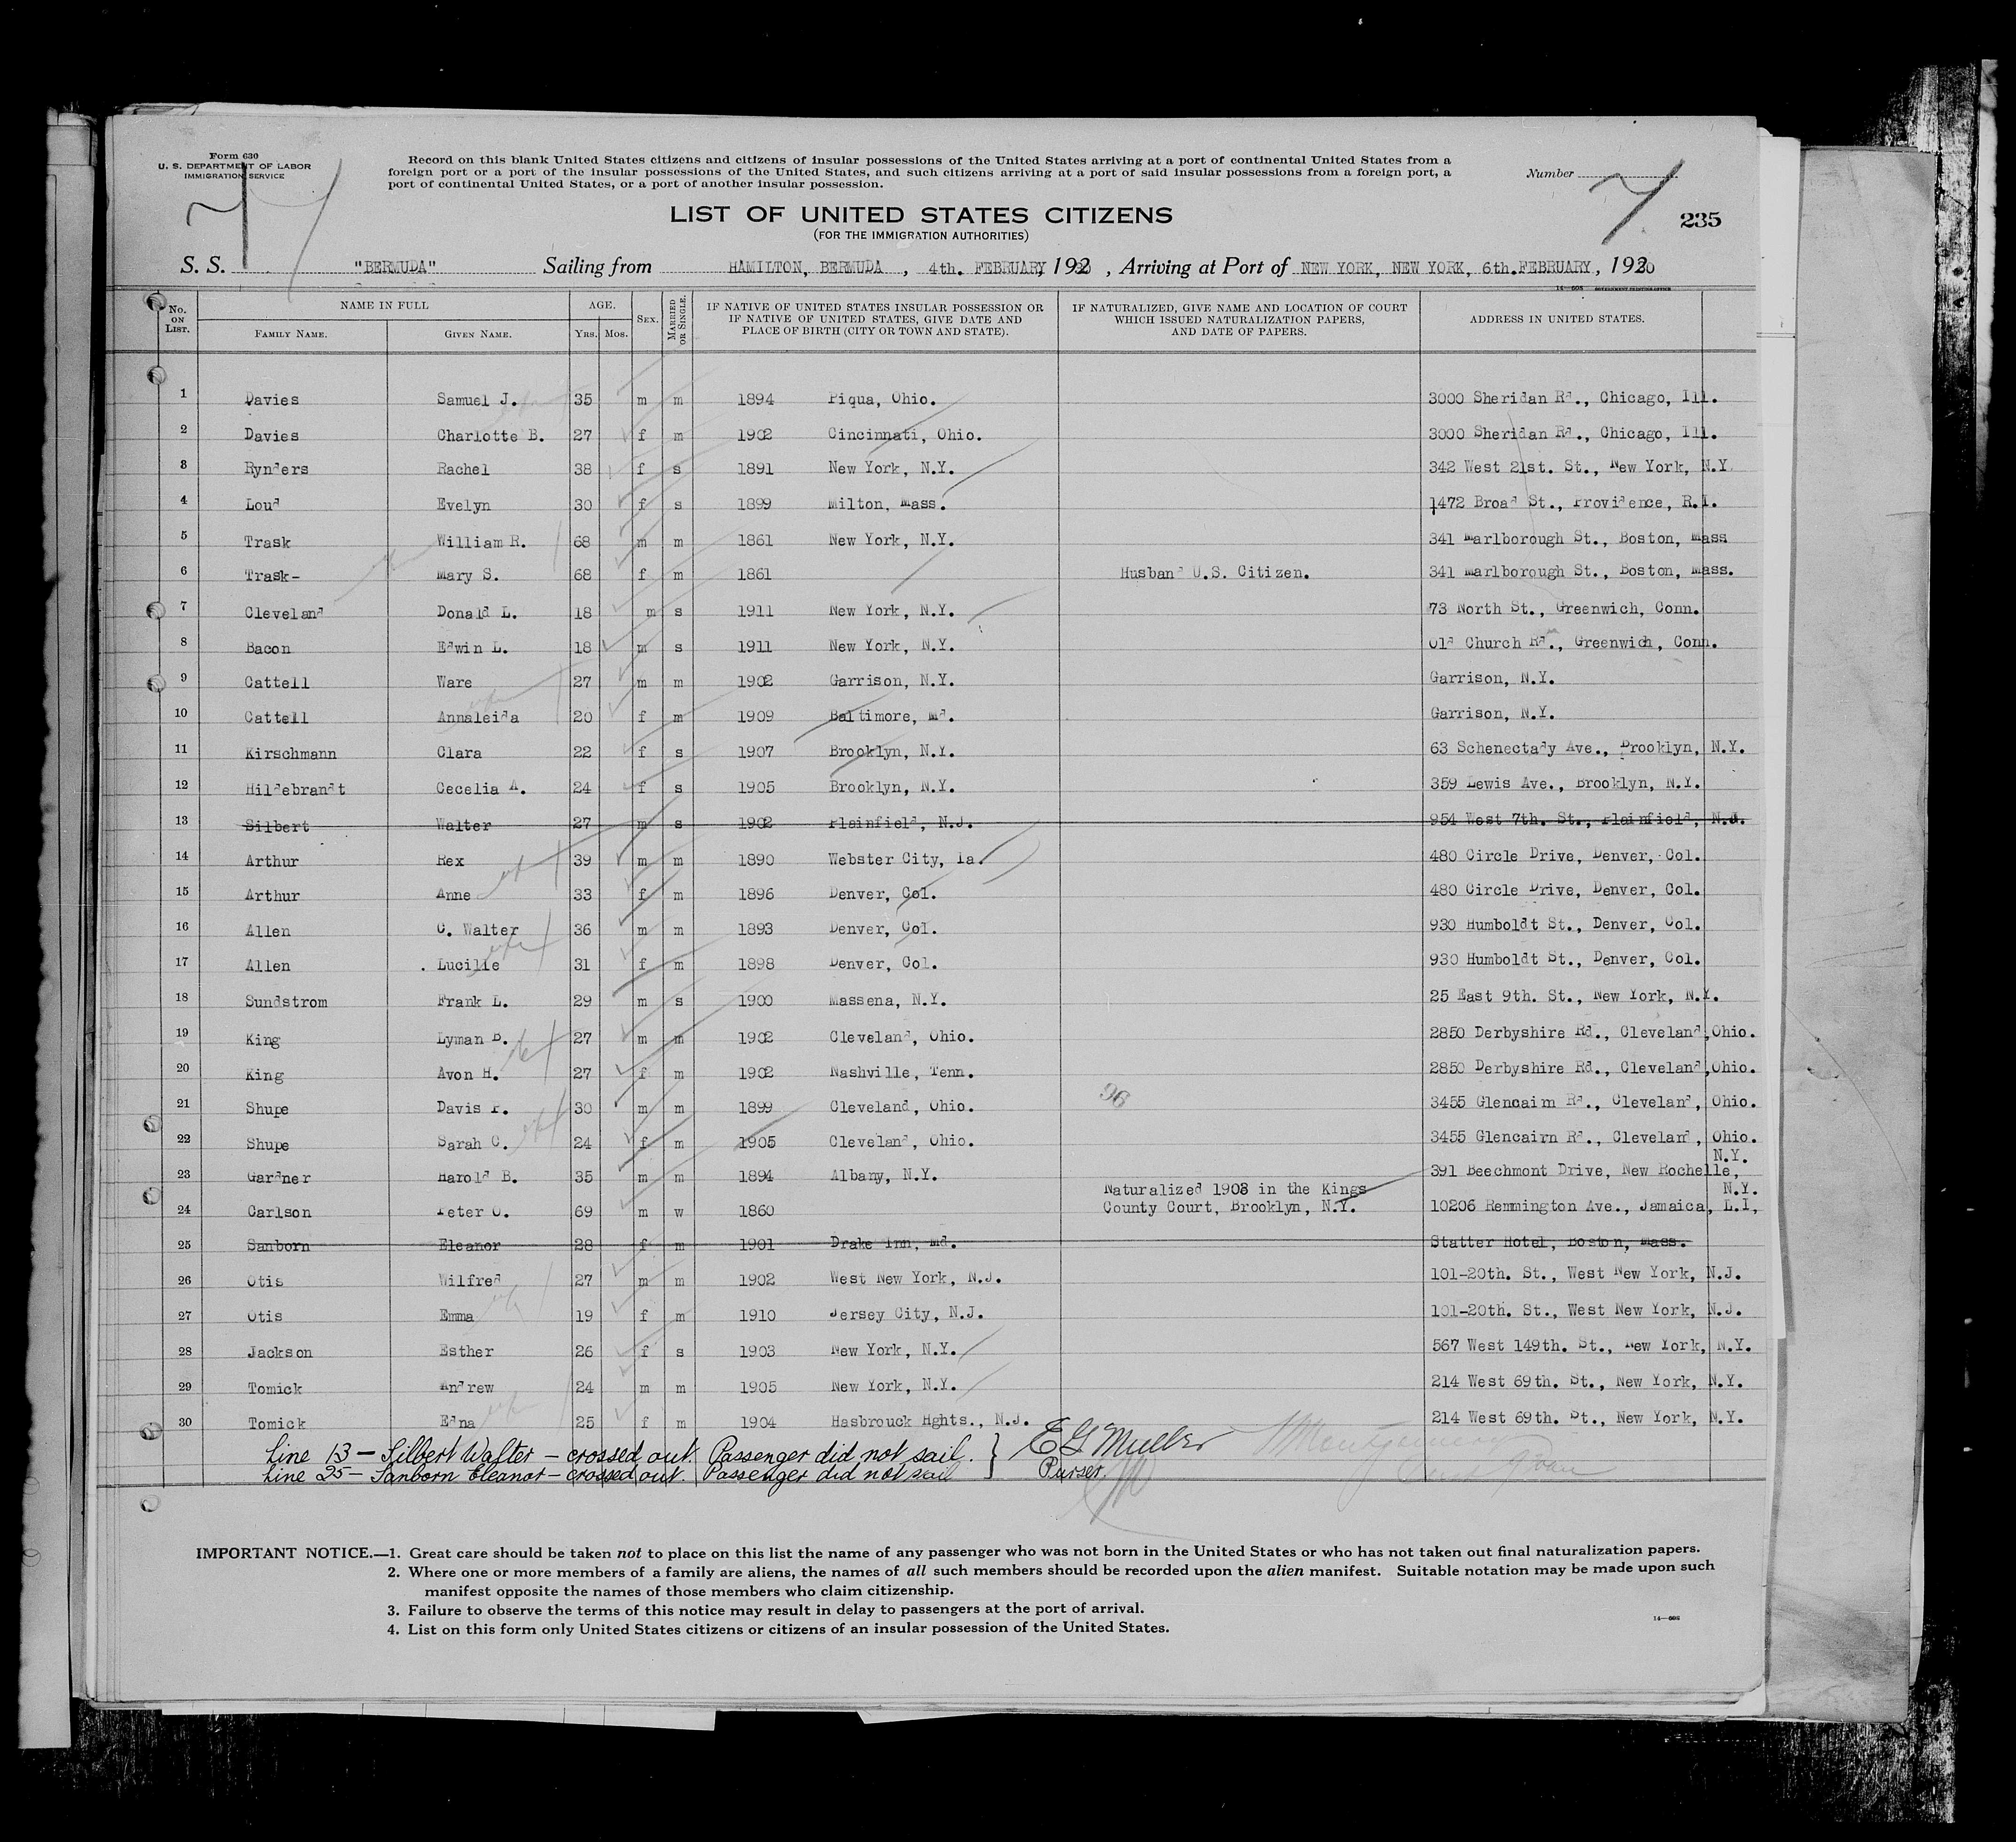 Form 630
U. S. DEPARTMENT OF LABOR
IMMIGRATION SERVICE
Record on this blank United States citizens and citizens of insular possessions of the United States arriving at a port of continental United States from a
foreign port or a port of the insular possessions of the United States, and such citizens arriving at a port of said insular possessions from a foreign port, a
port of continental United States, or a port of another insular possession.
Number
7 7
235
LIST OF UNITED STATES CITIZENS
(FOR THE IMMIGRATION AUTHORITIES)
S. S. "BERMUDA" Sailing from HAMILTON, BERMUDA, 4th. FEBRUARY, 1930, Arriving at Port of NEW YORK, NEW YORK, 6th. FEBRUARY, 1930
No. ON LIST. NAME IN FULL FAMILY NAME. GIVEN NAME. AGE. YRS. MOS. SEX. MARRIED OR SINGLE. IF NATIVE OF UNITED STATES INSULAR POSSESSION OR IF NATIVE OF UNITED STATES, GIVE DATE AND PLACE OF BIRTH (CITY OR TOWN AND STATE). IF NATURALIZED, GIVE NAME AND LOCATION OF COURT WHICH ISSUED NATURALIZATION PAPERS, AND DATE OF PAPERS. ADDRESS IN UNITED STATES.
1 Davies Samuel J. 35 m m 1894 Piqua, Ohio. 3000 Sheridan Rd., Chicago, Ill.
2 Davies Charlotte B. 27 f m 1902 Cincinnati, Ohio. 3000 Sheridan Rd., Chicago, Ill.
3 Rynders Rachel 38 f s 1891 New York, N.Y. 342 West 21st. St., New York, N.Y.
4 Loud Evelyn 30 f s 1899 Milton, Mass. 1472 Broad St., Providence, R.I.
5 Trask William R. 68 m m 1861 New York, N.Y. 341 Marlborough St., Boston, Mass
6 Trask- Mary S. 68 f m 1861 Husband U.S. Citizen. 341 Marlborough St., Boston, Mass.
7 Cleveland Donald L. 18 m s 1911 New York, N.Y. 73 North St., Greenwich, Conn.
8 Bacon Edwin L. 18 m s 1911 New York, N.Y. Old Church Rd., Greenwich, Conn.
9 Cattell Ware 27 m m 1902 Garrison, N.Y. Garrison, N.Y.
10 Cattell Annaleida 20 f m 1909 Baltimore, Md. Garrison, N.Y.
11 Kirschmann Clara 22 f s 1907 Brooklyn, N.Y. 63 Schenectady Ave., Brooklyn, N.Y.
12 Hildebrandt Cecelia A. 24 f s 1905 Brooklyn, N.Y. 359 Lewis Ave., Brooklyn, N.Y.
13 Silbert Walter 27 m s 1902 Plainfield, N.J. 954 West 7th. St., Plainfield, N.J.
14 Arthur Rex 39 m m 1890 Webster City, Ia. 480 Circle Drive, Denver, Col.
15 Arthur Anne 33 f m 1896 Denver, Col. 480 Circle Drive, Denver, Col.
16 Allen C. Walter 36 m m 1893 Denver, Col. 930 Humboldt St., Denver, Col.
17 Allen Lucille 31 f m 1898 Denver, Col. 930 Humboldt St., Denver, Col.
18 Sundstrom Frank L. 29 m s 1900 Massena, N.Y. 25 East 9th. St., New York, N.Y.
19 King Lyman B. 27 m m 1902 Cleveland, Ohio. 2850 Derbyshire Rd., Cleveland, Ohio.
20 King Avon H. 27 f m 1902 Nashville, Tenn. 2850 Derbyshire Rd., Cleveland, Ohio.
21 Shupe Davis P. 30 m m 1899 Cleveland, Ohio. 96 3455 Glencairn Rd., Cleveland, Ohio.
22 Shupe Sarah C. 24 f m 1905 Cleveland, Ohio. 3455 Glencairn Rd., Cleveland, Ohio.
23 Gardner Harold B. 35 m m 1894 Albany, N.Y. 391 Beechmont Drive, New Rochelle, N.Y.
24 Carlson Peter O. 69 m w 1860 Naturalized 1908 in the Kings County Court, Brooklyn, N.Y. 10206 Remmington Ave., Jamaica, L.I, N.Y.
25 Sanborn Eleanor 28 f m 1901 Drake Inn, Md. Statter Hotel, Boston, Mass.
26 Otis Wilfred 27 m m 1902 West New York, N.J. 101-20th. St., West New York, N.J.
27 Otis Emma 19 f m 1910 Jersey City, N.J. 101-20th. St., West New York, N.J.
28 Jackson Esther 26 f s 1903 New York, N.Y. 567 West 149th. St., New York, N.Y.
29 Tomick Andrew 24 m m 1905 New York, N.Y. 214 West 69th. St., New York, N.Y.
30 Tomick Edna 25 f m 1904 Hasbrouck Hghts., N.J. 214 West 69th. St., New York, N.Y.
Line 13 - Silbert Walter - crossed out. Passenger did not sail. } E G Muller
Line 25 - Sanborn Eleanor - crossed out. Passenger did not sail Purser.
IMPORTANT NOTICE.—1. Great care should be taken not to place on this list the name of any passenger who was not born in the United States or who has not taken out final naturalization papers.
2. Where one or more members of a family are aliens, the names of all such members should be recorded upon the alien manifest. Suitable notation may be made upon such
manifest opposite the names of those members who claim citizenship.
3. Failure to observe the terms of this notice may result in delay to passengers at the port of arrival.
4. List on this form only United States citizens or citizens of an insular possession of the United States.
14—608